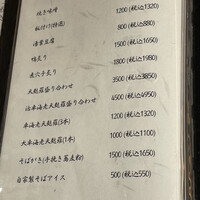 焼き味噌 1200 (税込1320)
板付け(特選) 800 (税込880)
湯葉豆腐 1500 (税込1650)
鴨炙り 1800 (税込1980)
煮穴子炙り 3500 (税込3850)
天麩羅盛り合わせ 4500 (税込4950)
活車海老天麩羅盛り合わせ 1200 (税込1320)
車海老天麩羅(3本) 1000 (税込1100)
大車海老天麩羅(1本) 1500 (税込1650)
そばがき(手挽き蕎麦粉) 500 (税込550)
自家製そばアイス